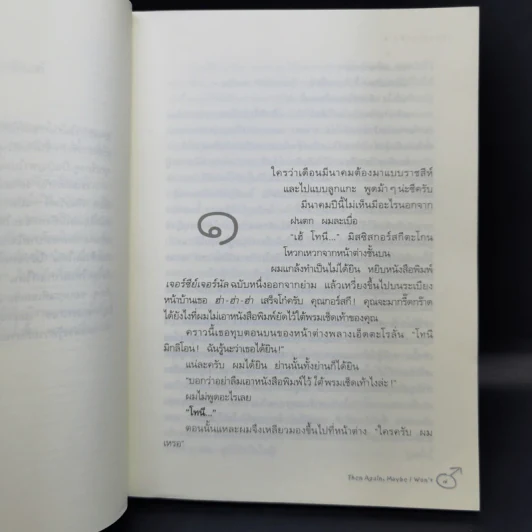 ใครว่าเดือนมีนาคมต้องมาแบบราชสีห์
และไปแบบลูกแกะ พูดม้า ๆ น่ะซีครับ
มีนาคมปีนี้ไม่เห็นมีอะไรนอกจาก
ฝนตก ผมละเบื่อ
๑
"เฮ้ โทนี..." มิสซิสกอร์สกีตะโกน
โหวกเหวกจากหน้าต่างชั้นบน
ผมแกล้งทำเป็นไม่ได้ยิน หยิบหนังสือพิมพ์
เจอร์ซีย์เจอร์นัล ฉบับหนึ่งออกจากย่าม แล้วเหวี่ยงขึ้นไปบนระเบียง
หน้าบ้านเธอ ฮ่า-ฮ่า-ฮ่า เสร็จโก๋ครับ คุณกอร์สกี! คุณจะมากรี๊ดกร๊าด
ได้ยังไงที่ผมไม่เอาหนังสือพิมพ์ยัดไว้ใต้พรมเช็ดเท้าของคุณ
คราวนี้เธอทุบตอนบนของหน้าต่างพลางเอ็ดตะโรลั่น "โทนี
มิกลิโอน! ฉันรู้นะว่าเธอได้ยิน!"
แน่ละครับ ผมได้ยิน ย่านนั้นทั้งย่านก็ได้ยิน
"บอกว่าอย่าลืมเอาหนังสือพิมพ์ไว้ใต้พรมเช็ดเท้าไงล่ะ!"
ผมไม่พูดอะไรเลย
"โทนี..."
ตอนนั้นแหละผมจึงเหลียวมองขึ้นไปที่หน้าต่าง "ใครครับ ผม
เหรอ"
Then Again, Maybe I Won't